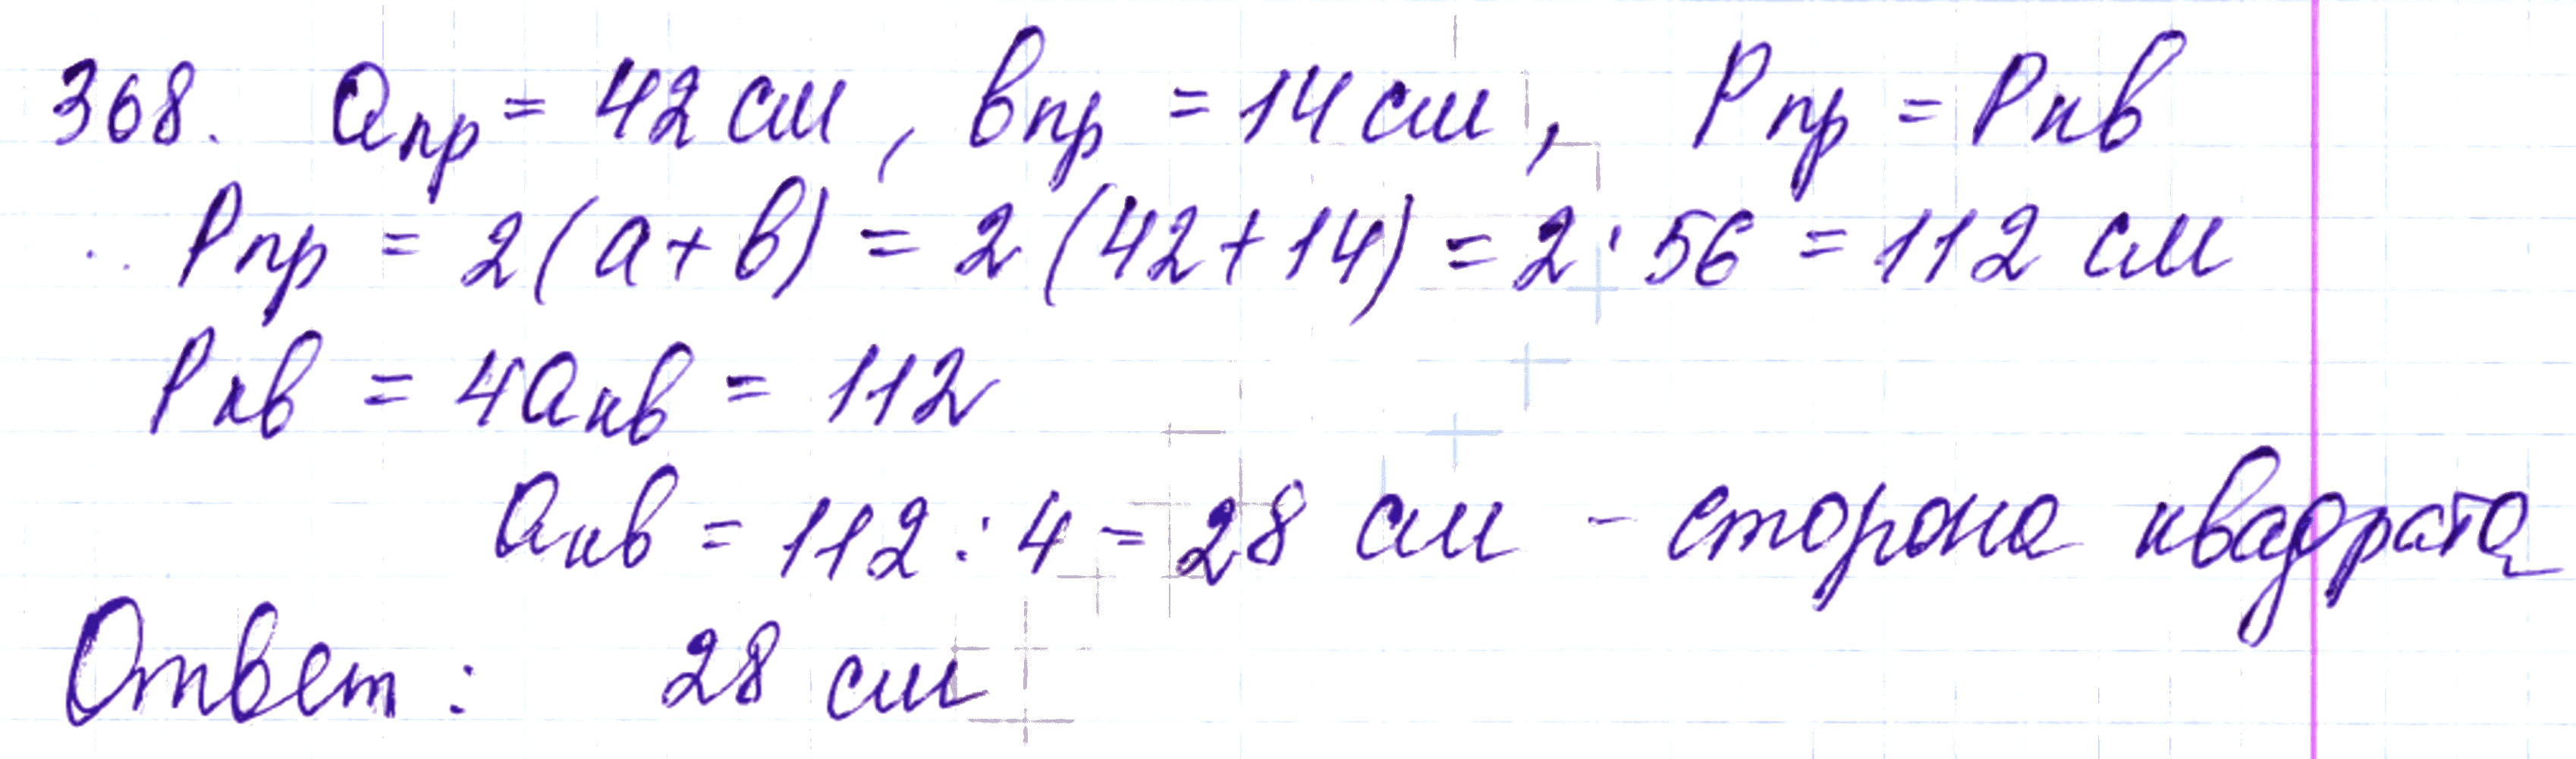 368. aпр = 42 см, впр = 14 см, Pпр = Pкв
Pпр = 2(a+в) = 2(42+14) = 2·56 = 112 см
Pкв = 4aкв = 112
aкв = 112 : 4 = 28 см - сторона квадрата
Ответ: 28 см